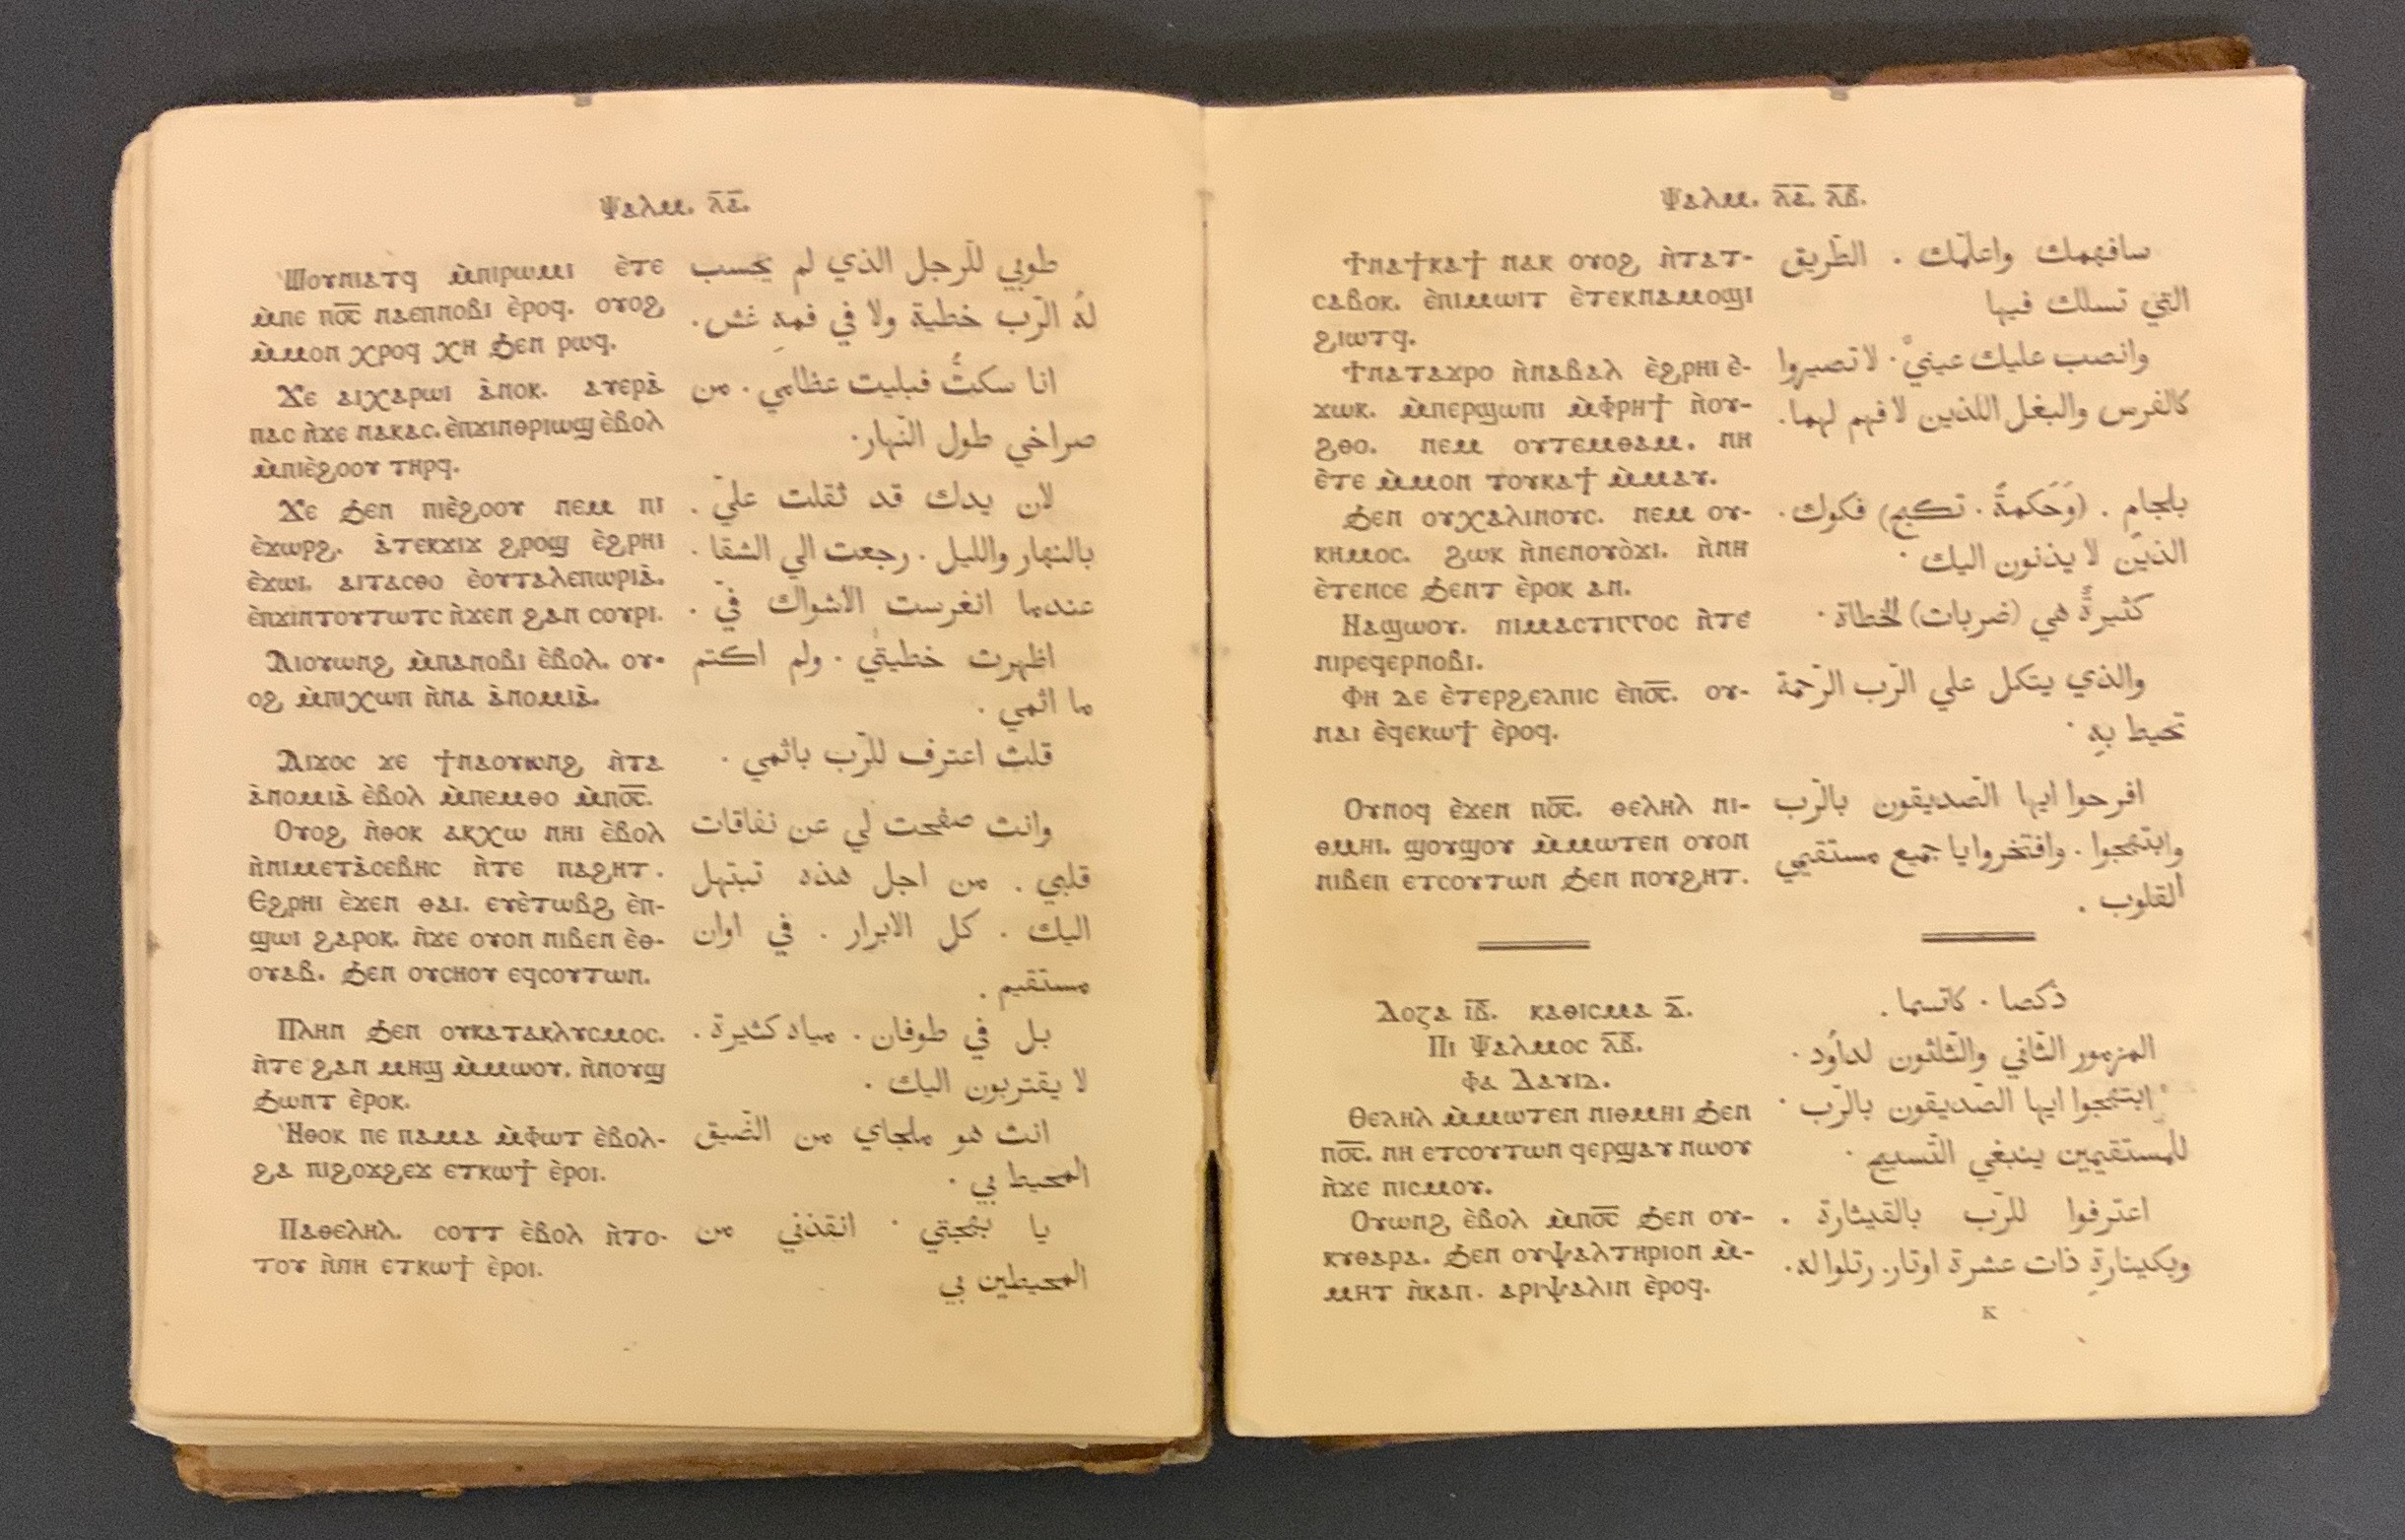 Ⲯⲁⲗⲙ. ⲗ̅ⲁ̅.
Ⲱⲟⲩⲛⲓⲁⲧϥ ⲙ̀ⲡⲓⲣⲱⲙⲓ ⲉ̀ⲧⲉ
ⲙ̀ⲡⲉ ⲡⲟ̅ⲥ̅ ⲛⲁⲉⲡⲛⲟⲃⲓ ⲉ̀ⲣⲟϥ. ⲟⲩⲟϩ
ⲙ̀ⲙⲟⲛ ⲭⲣⲟϥ ⲭⲏ ϧⲉⲛ ⲣⲱϥ.
Ϫⲉ ⲁⲓⲭⲁⲣⲱⲓ ⲁ̀ⲛⲟⲕ. ⲁⲩⲉⲣⲁ̀
ⲡⲁⲥ ⲛ̀ϫⲉ ⲛⲁⲕⲁⲥ. ⲉ̀ⲡϫⲓⲛⲑⲣⲓⲱϣ ⲉ̀ⲃⲟⲗ
ⲙ̀ⲡⲓⲉ̀ϩⲟⲟⲩ ⲧⲏⲣϥ.
Ϫⲉ ϧⲉⲛ ⲡⲓⲉ̀ϩⲟⲟⲩ ⲛⲉⲙ ⲡⲓ
ⲉ̀ϫⲱⲣϩ. ⲁ̀ⲧⲉⲕϫⲓϫ ϩⲣⲟϣ ⲉ̀ϩⲣⲏⲓ
ⲉ̀ϫⲱⲓ. ⲁⲓⲧⲁⲥⲑⲟ ⲉ̀ⲟⲩⲧⲁⲗⲉⲡⲱⲣⲓⲁ̀.
ⲉ̀ⲡϫⲓⲛⲧⲟⲩⲧⲱⲧⲥ ⲛ̀ϫⲉⲛ ϩⲁⲛ ⲥⲟⲩⲣⲓ.
Ⲁⲓⲟⲩⲱⲛϩ ⲙ̀ⲡⲁⲛⲟⲃⲓ ⲉ̀ⲃⲟⲗ. ⲟⲩ-
ⲟϩ ⲙ̀ⲡⲓⲭⲱⲡ ⲛ̀ⲧⲁ ⲁ̀ⲛⲟⲙⲓⲁ̀.
Ⲁⲓϫⲟⲥ ϫⲉ ϯⲛⲁⲟⲩⲱⲛϩ ⲛ̀ⲧⲁ
ⲁ̀ⲛⲟⲙⲓⲁ̀ ⲉ̀ⲃⲟⲗ ⲙ̀ⲡⲉⲙⲑⲟ ⲙ̀ⲡⲟ̅ⲥ̅.
Ⲟⲩⲟϩ ⲛ̀ⲑⲟⲕ ⲁⲕⲭⲱ ⲛⲏⲓ ⲉ̀ⲃⲟⲗ
ⲛ̀ⲛⲓⲙⲉⲧⲁ̀ⲥⲉⲃⲏⲥ ⲛ̀ⲧⲉ ⲡⲁϩⲏⲧ.
Ⲉϩⲣⲏⲓ ⲉ̀ϫⲉⲛ ⲑⲁⲓ. ⲉⲩⲉ̀ⲧⲱⲃϩ ⲉ̀ⲡ-
ϣⲱⲓ ϩⲁⲣⲟⲕ. ⲛ̀ϫⲉ ⲟⲩⲟⲛ ⲛⲓⲃⲉⲛ ⲉ̀ⲑ-
ⲟⲩⲁⲃ. ϧⲉⲛ ⲟⲩⲥⲏⲟⲩ ⲉϥⲥⲟⲩⲧⲱⲛ.
Ⲡⲗⲏⲛ ϧⲉⲛ ⲟⲩⲕⲁⲧⲁⲕⲗⲩⲥⲙⲟⲥ.
ⲛ̀ⲧⲉ ϩⲁⲛ ⲙⲏϣ ⲙ̀ⲙⲱⲟⲩ. ⲛ̀ⲛⲟⲩϣ
ϧⲱⲛⲧ ⲉ̀ⲣⲟⲕ.
Ⲛ̀ⲑⲟⲕ ⲡⲉ ⲡⲁⲙⲁ ⲙ̀ⲫⲱⲧ ⲉ̀ⲃⲟⲗ-
ϩⲁ ⲡⲓϩⲟϫϩⲉϫ ⲉⲧⲕⲱϯ ⲉ̀ⲣⲟⲓ.
Ⲡⲁⲑⲉⲗⲏⲗ. ⲥⲟⲧⲧ ⲉ̀ⲃⲟⲗ ⲛ̀ⲧⲟ-
ⲧⲟⲩ ⲛ̀ⲛⲏ ⲉⲧⲕⲱϯ ⲉ̀ⲣⲟⲓ.
طوبي للرّجل الذي لم يحسب
لهُ الرّب خطية ولا في فمه غش.
انا سكتُّ فبليت عظامي. من
صراخي طول النّهار.
لان يدك قد ثقلت عليّ.
بالنهار والليل. رجعت الي الشقا.
عندما انغرست الاشواك فيّ.
اظهرت خطيتي. ولم اكتم
ما اثمي.
قلت اعترف للرّب باثمي.
وانت صفحت لي عن نفاقات
قلبي. من اجل هذه تبتهل
اليك. كل الابرار. في اوان
مستقيم.
بل في طوفان. مياه كثيرة.
لا يقتربون اليك.
انت هو ملجاي من الضّيق
المحيط بي.
يا بهجتي. انقذني من
المحيطين بي
Ⲯⲁⲗⲙ. ⲗ̅ⲁ̅. ⲗ̅ⲃ̅.
Ϯⲛⲁϯⲕⲁϯ ⲛⲁⲕ ⲟⲩⲟϩ ⲛ̀ⲧⲁⲧ-
ⲥⲁⲃⲟⲕ. ⲉ̀ⲡⲓⲙⲱⲓⲧ ⲉ̀ⲧⲉⲕⲛⲁⲙⲟϣⲓ
ϩⲓⲱⲧϥ.
Ϯⲛⲁⲧⲁϫⲣⲟ ⲛ̀ⲛⲁⲃⲁⲗ ⲉ̀ϩⲣⲏⲓ ⲉ̀-
ϫⲱⲕ. ⲙ̀ⲡⲉⲣϣⲱⲡⲓ ⲙ̀ⲫⲣⲏϯ ⲛ̀ⲟⲩ-
ϩⲑⲟ. ⲛⲉⲙ ⲟⲩⲧⲉⲙⲑⲁⲙ. ⲛⲏ
ⲉ̀ⲧⲉ ⲙ̀ⲙⲟⲛ ⲧⲟⲩⲕⲁϯ ⲙ̀ⲙⲁⲩ.
ϧⲉⲛ ⲟⲩⲭⲁⲗⲓⲛⲟⲩⲥ. ⲛⲉⲙ ⲟⲩ-
ⲕⲏⲙⲟⲥ. ϩⲱⲕ ⲛ̀ⲛⲉⲛⲟⲩⲟ̀ϫⲓ. ⲛ̀ⲛⲏ
ⲉ̀ⲧⲉⲛⲥⲉ ϧⲉⲛⲧ ⲉ̀ⲣⲟⲕ ⲁⲛ.
Ⲛⲁϣⲱⲟⲩ. ⲛⲓⲙⲁⲥⲧⲓⲅⲅⲟⲥ ⲛ̀ⲧⲉ
ⲛⲓⲣⲉϥⲉⲣⲛⲟⲃⲓ.
Ⲫⲏ ⲇⲉ ⲉ̀ⲧⲉⲣϩⲉⲗⲡⲓⲥ ⲉ̀ⲡⲟ̅ⲥ̅. ⲟⲩ-
ⲛⲁⲓ ⲉ̀ϥⲉⲕⲱϯ ⲉ̀ⲣⲟϥ.
Ⲟⲩⲛⲟϥ ⲉ̀ϫⲉⲛ ⲡⲟ̅ⲥ̅. ⲑⲉⲗⲏⲗ ⲛⲓ-
ⲑⲙⲏⲓ. ϣⲟⲩϣⲟⲩ ⲙ̀ⲙⲱⲧⲉⲛ ⲟⲩⲟⲛ
ⲛⲓⲃⲉⲛ ⲉⲧⲥⲟⲩⲧⲱⲛ ϧⲉⲛ ⲡⲟⲩϩⲏⲧ.
Ⲇⲟⲝⲁ ⲓ̅ⲃ̅. ⲕⲁⲑⲓⲥⲙⲁ ⲇ̅.
Ⲡⲓ Ⲯⲁⲗⲙⲟⲥ ⲗ̅ⲃ̅.
ⲫⲁ Ⲇⲁⲩⲓⲇ.
Ⲑⲉⲗⲏⲗ ⲙ̀ⲙⲱⲧⲉⲛ ⲛⲓⲑⲙⲏⲓ ϧⲉⲛ
ⲡⲟ̅ⲥ̅. ⲛⲏ ⲉⲧⲥⲟⲩⲧⲱⲛ ϥⲉⲣϣⲁⲩ ⲛⲱⲟⲩ
ⲛ̀ϫⲉ ⲡⲓⲥⲙⲟⲩ.
Ⲟⲩⲱⲛϩ ⲉ̀ⲃⲟⲗ ⲙ̀ⲡⲟ̅ⲥ̅ ϧⲉⲛ ⲟⲩ-
ⲕⲩⲑⲁⲣⲁ. ϧⲉⲛ ⲟⲩⲯⲁⲗⲧⲏⲣⲓⲟⲛ ⲙ̀-
ⲙⲏⲧ ⲛ̀ⲕⲁⲡ. ⲁⲣⲓⲯⲁⲗⲓⲛ ⲉ̀ⲣⲟϥ.
سافهمك واعلّمك. الطّريق
التي تسلك فيها
وانصب عليك عينيّ. لا تصيروا
كالفرس والبغل اللذين لا فهم لهما.
بلجام. (وَحَكمةً. تكبح) فكوك.
الذيّن لا يذنون اليك.
كثيرةٌ هي (ضربات) الخطاة.
والذي يتكل علي الرّب الرّحمة
تحيط به.
افرحوا ايها الصّديقون بالرّب
وابتهجوا. وافتخروا يا جميع مستقيمي
القلوب.
ذكصا. كاتسما.
المزمور الثّاني والثّلثون لداوُد.
ابتهجوا ايها الصّديقون بالرّب.
للمستقيمين ينبغي التّسبيح.
اعترفوا للرّب بالقيثارة.
وبكينارةٍ ذات عشرة اوتار. رتلوا له.
K